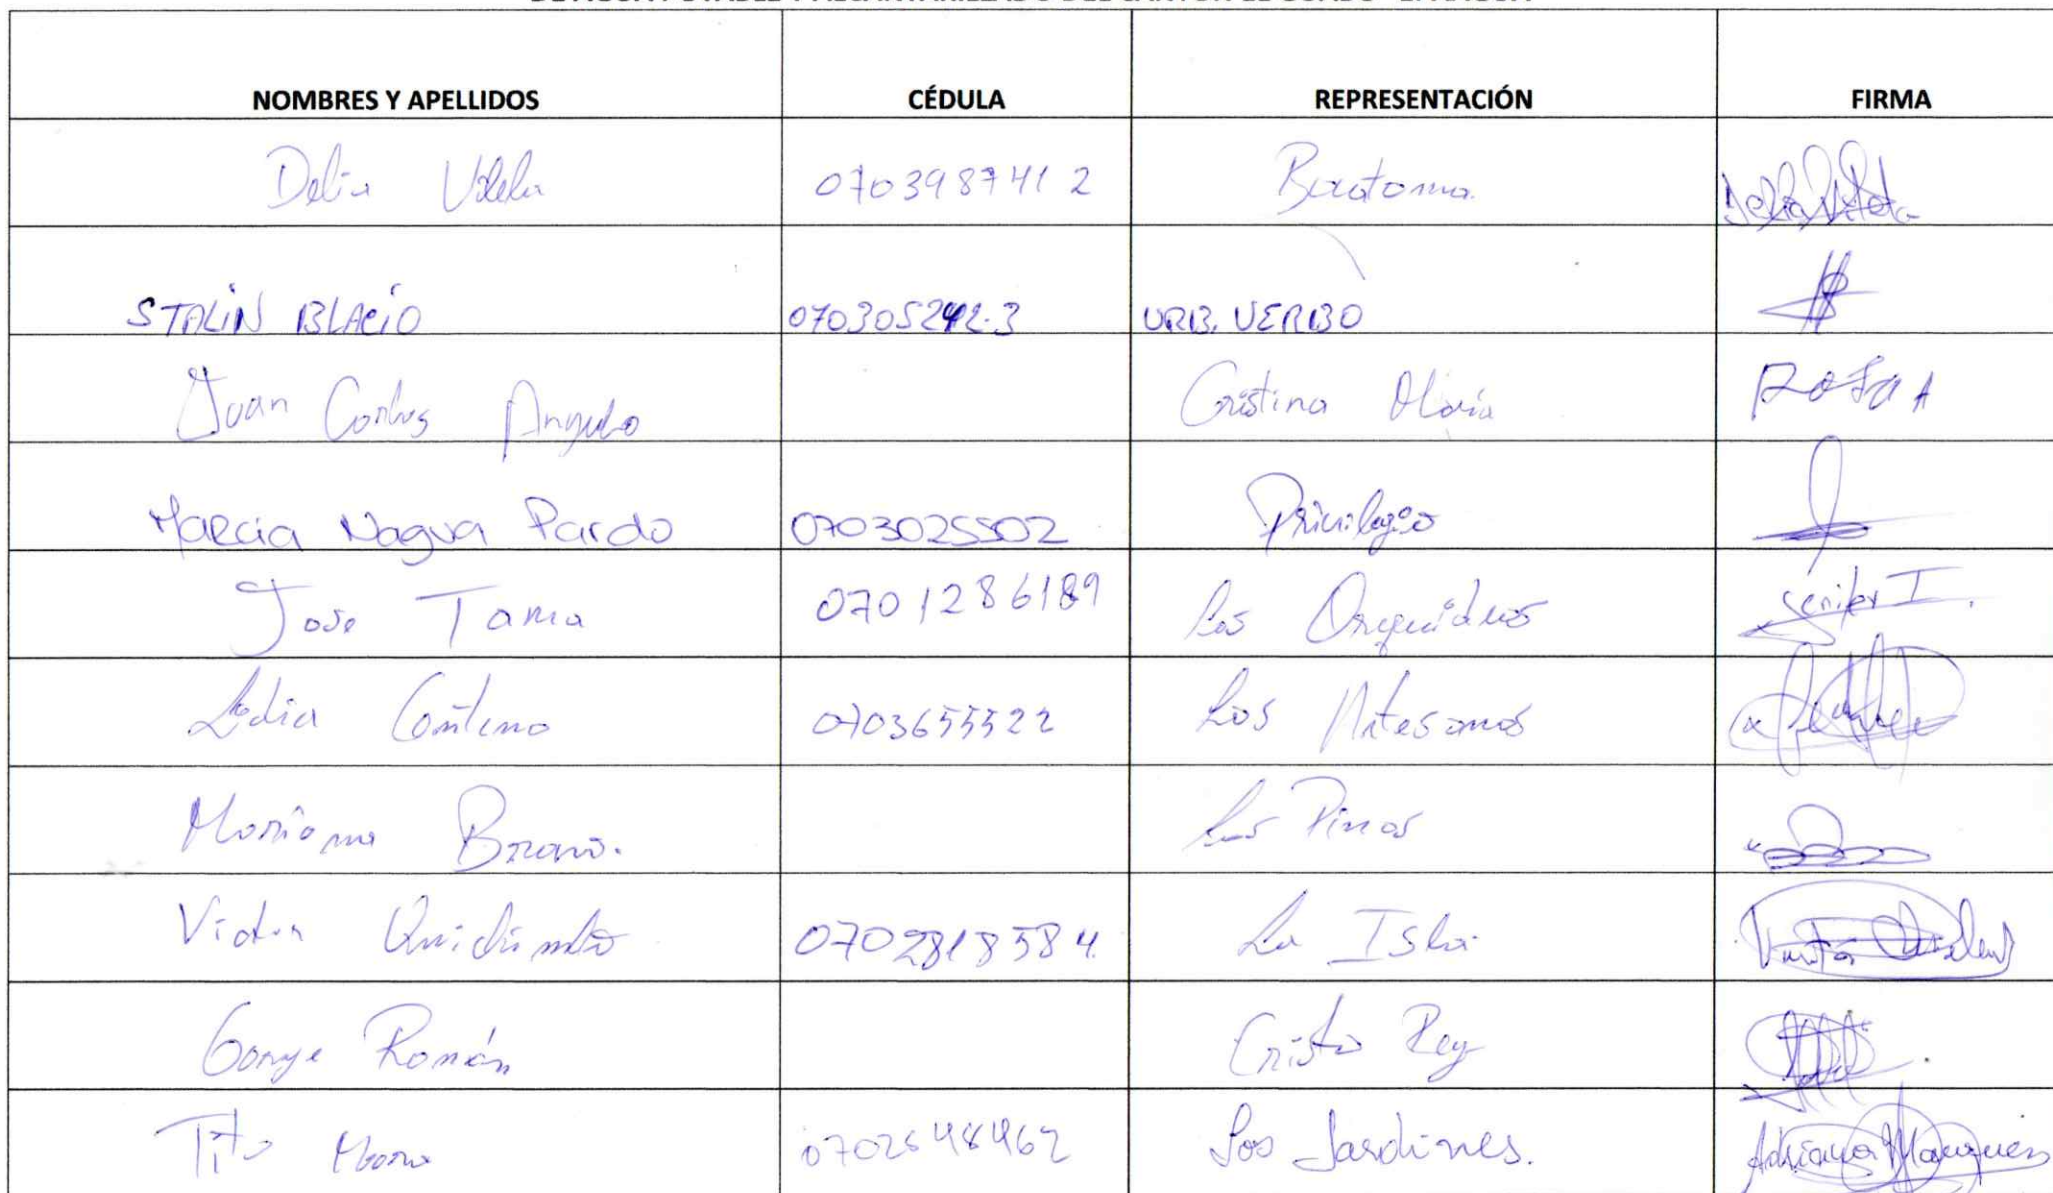 NOMBRES Y APELLIDOS CÉDULA REPRESENTACIÓN FIRMA
Delia Vilela 070398741 2
STALIN BLACIO 070305242-3 URB. VERBO
Juan Carlos Angulo Cristina María ROSA A
Marcia Nagua Pardo 0703025502 Privilegio
Jose Tama 0701286189 Las Orquídeas
Lidia 0703655522 Los Artesanos
Mariana Bravo. Los Pinos
Victor 0702818584 La Isla
Román Cristo Rey
Tito Mora 0702648462 Los Jardines. Adriana